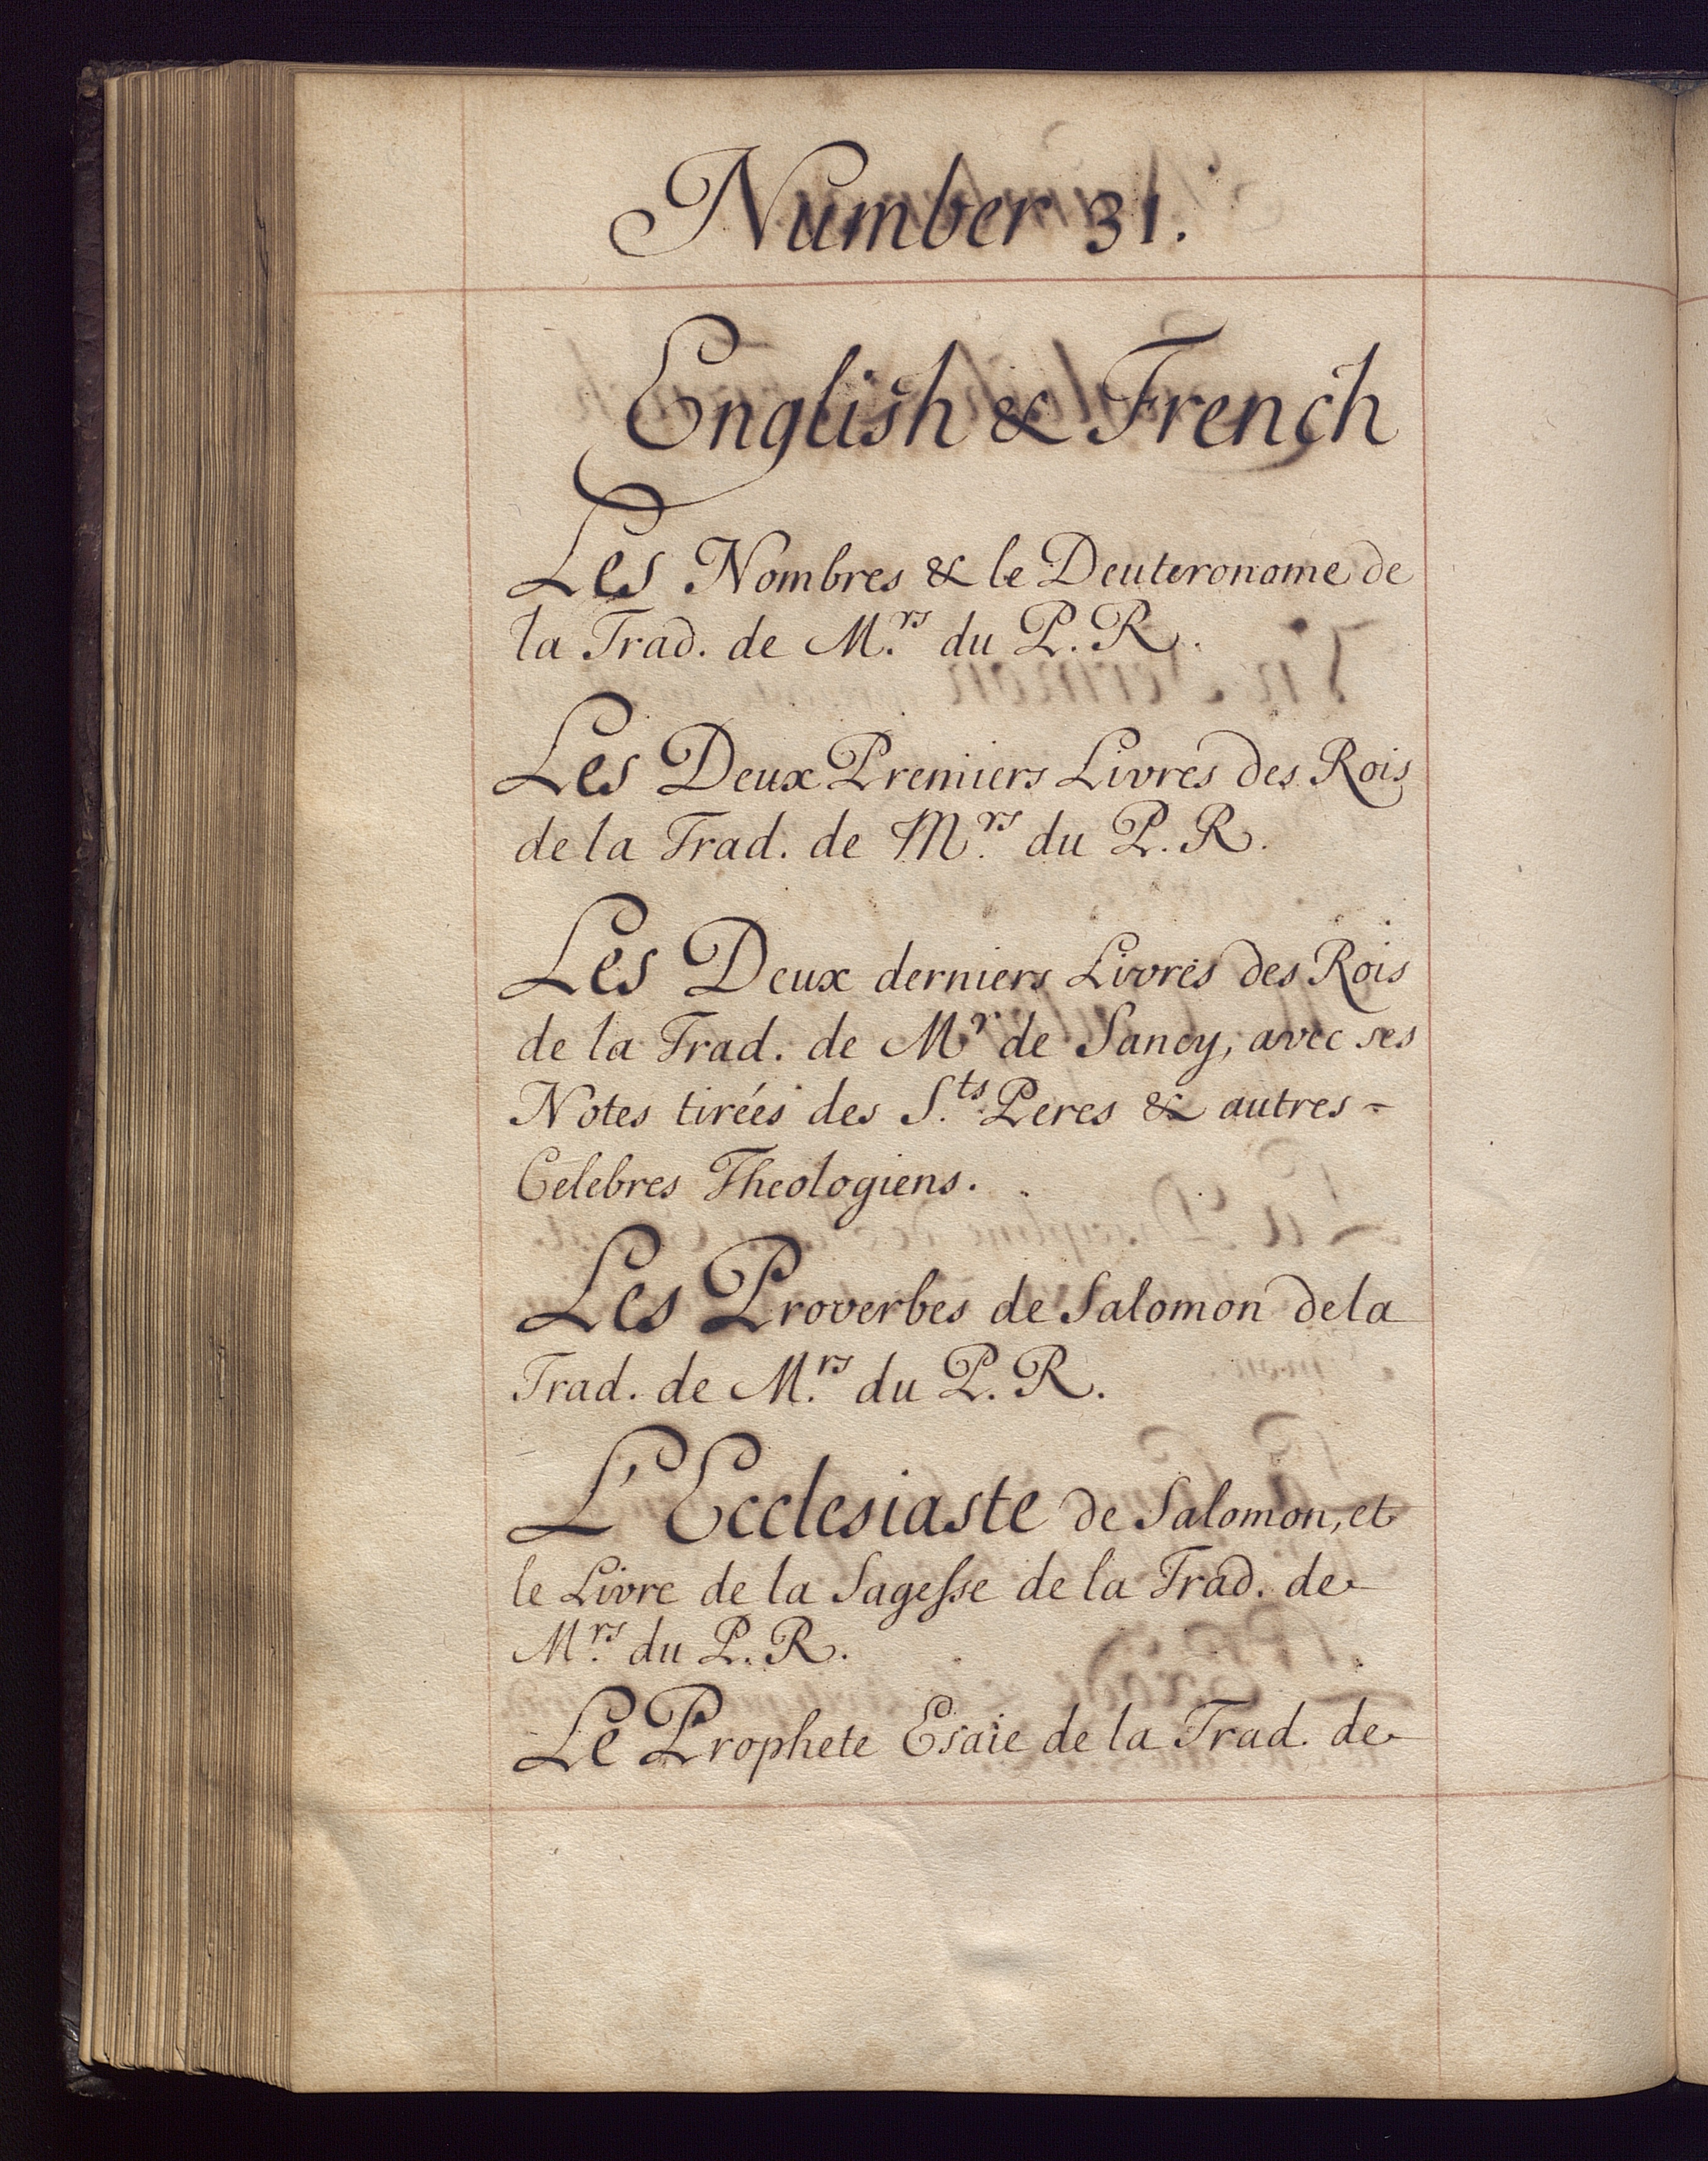 Number 31.
English & French
Les Nombres & le Deuteronome de
la Trad. de M.rs du P. R.
Les Deux Premiers Livres des Rois
de la Trad. de M.rs du P. R.
Les Deux derniers Livres des Rois
de la Trad. de Mr de Sancy, avec ses
Notes tirées des S.ts Peres & autres-
Celebres Theologiens.
Les Proverbes de Salomon de la
Trad. de M.rs du P. R.
L'Ecclesiaste de Salomon, et
le Livre de la Sagesse de la Trad. de
M.rs du P. R.
Le Prophete Esaie de la Trad. de